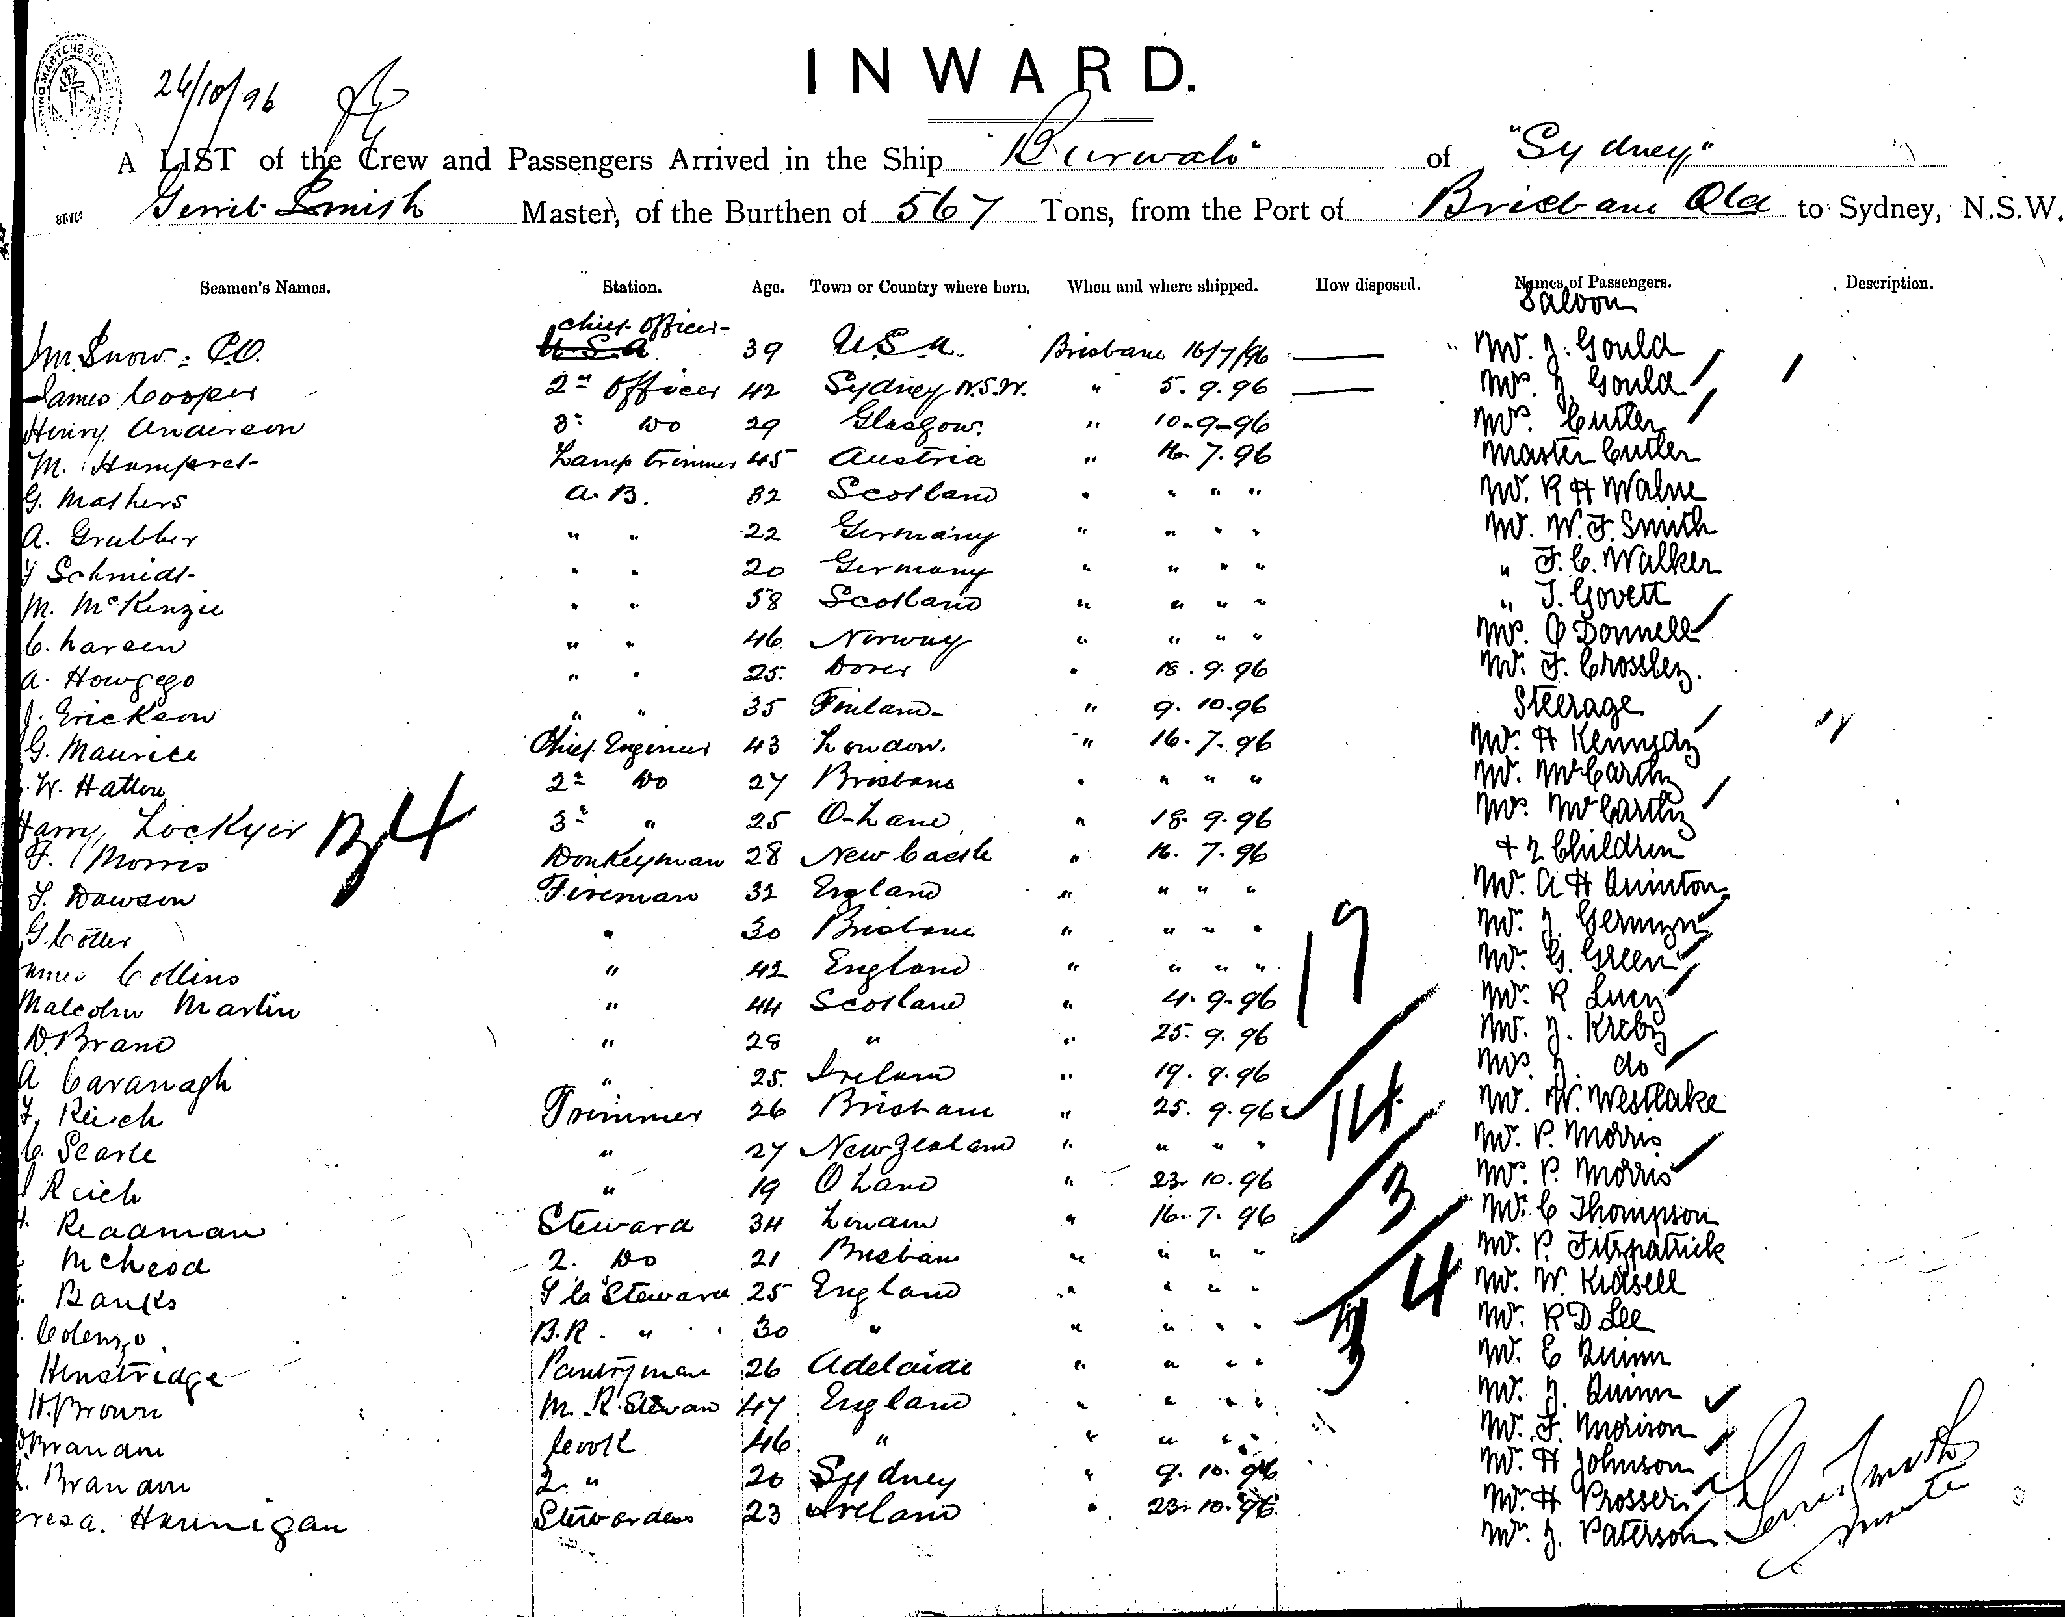 26/10/96
INWARD.
A LIST of the Crew and Passengers Arrived in the Ship "Burwah" of "Sydney"
Gerrit Smith Master, of the Burthen of 567 Tons, from the Port of Brisbane Qld to Sydney, N.S.W.
Seamen's Names. Station. Age. Town or Country where born. When and where shipped. How disposed. Names of Passengers. Description.
Saloon
chief officer
Snow 39 U.S.A. Brisbane 16/7/96 Mr. J. Gould
James Cooper 2nd Officer 42 Sydney N.S.W. " 5. 9. 96 Mrs. J. Gould
Henry Anderson 3rd Do 29 Glasgow " 10-9-96 Mrs. Cutler
M. Lamp trimmer 45 Austria " 16. 7. 96 Master Cutler
G. Mathers A.B. 32 Scotland " " " " Mr. R H Walne
A. Grubber " " 22 Germany " " " " Mr. W. F. Smith
Schmidt " " 20 Germany " " " " " F. C. Walker
M. McKenzie " " 58 Scotland " " " " " J. Govett
C. Larsen " " 46 Norway " " " " Mrs. O Donnell
A. Howgego " " 25 Dover " 18. 9. 96 Mr. F. Crossley.
J. Erickson " " 35 Finland " 9. 10. 96 Steerage
G. Maurice Chief Engineer 43 London. " 16. 7. 96 Mr. H Kennedy
W. Hatton 2nd Do 27 Brisbane " " " " Mr. McCarthy
Harry Lockyer 34 3rd " 25 Q-Land " 18. 9. 96 Mrs McCarthy
F. Morris Donkeyman 28 New Castle " 16. 7. 96 + 2 Children
Dawson Fireman 32 England " " " " Mr. A H Quinton
G Cotter " 30 Brisbane " " " " Mr. J. Germyn
James Collins " 42 England " " " " 19 Mr. G. Green
Malcolm Martin " 44 Scotland " 4. 9. 96 Mr. R Lucy
D. Brand " 28 " " 25. 9. 96 Mr. J. Kreby
A Cavanagh " 25. Ireland " 19. 9. 96 Mrs J. do
Reich Trimmer 26 Brisbane " 25. 9. 96 14 Mr. W. Westlake
C. Searle " 27 New Zealand " " " " Mr. P. Morris
Reich " 19 Q Land " 23. 10. 96 3 Mrs. P. Morris
Readman Steward 34 London " 16. 7. 96 Mr. C Thompson
McLeod 2. Do 21 Brisbane " " " " Mr. P. Fitzpatrick
Banks Steward 25 England " " " " 4 Mr. W. Kidsell
Colenzo B.R. " 30 " " " " " 3 Mr. R D Lee
Henstridge Pantryman 26 Adelaide " " " " Mr. E Quinn
H. Brown M. R. Stewart 47 England " " " " Mr. J. Quinn
Brandon Cook 46 " " " " " Mr. F. Morison
Brandon 2. " 20 Sydney " 9. 10. 96 Mr. H Johnson
Hannigan Stewardess 23 Ireland " 23. 10. 96 Mr. H Prosser
Mr. J. Paterson
Gerrit Smith
Master